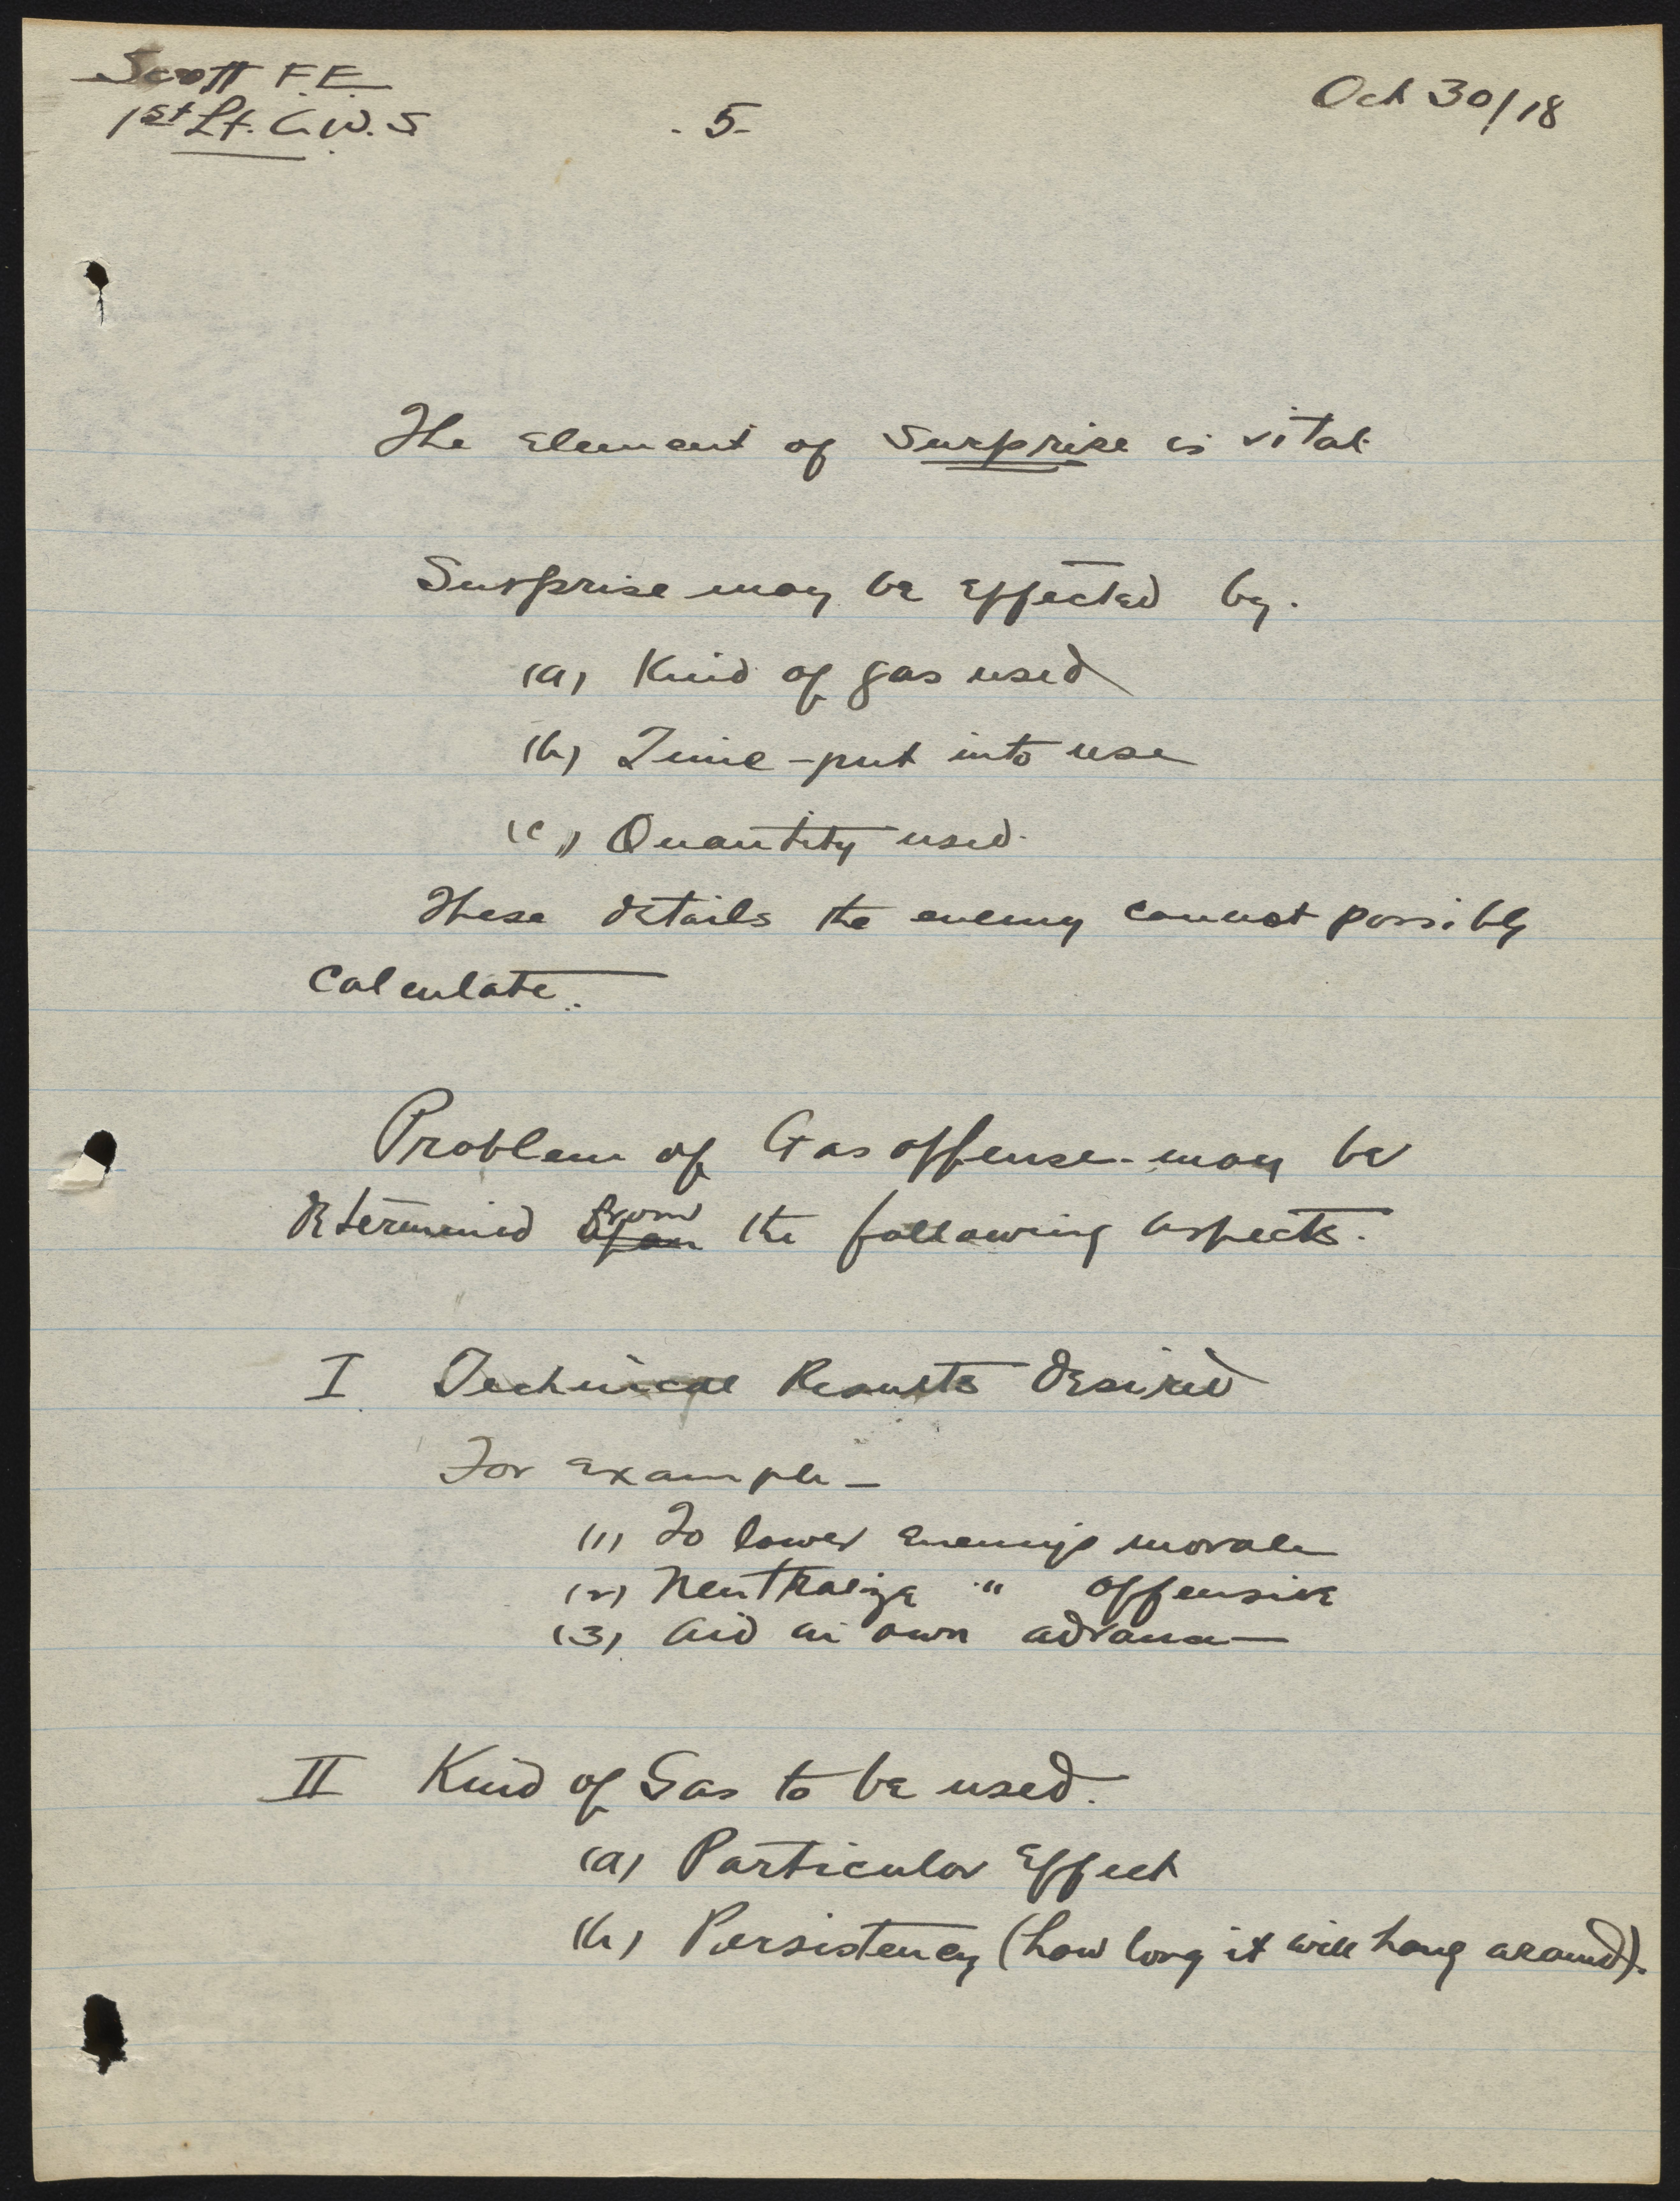 Scott F.E.
1st Lt. C.W.S
- 5 -
Oct 30/18
The Element of Surprise is vital.
Surprise may be Effected by.
(a) Kind of gas used
(b) Time - put into use
(c) Quantity used.
These details the enemy cannot possibly
calculate.
Problem of Gas offense may be
determined upon from the following aspects.
I Technical Results Desired
For Example -
(1) To lower Enemy's morale
(2) Neutralize " offensive
(3) Aid in own advance
II Kind of Gas to be used.
(a) Particular Effect
(b) Persistency (how long it will hang around).